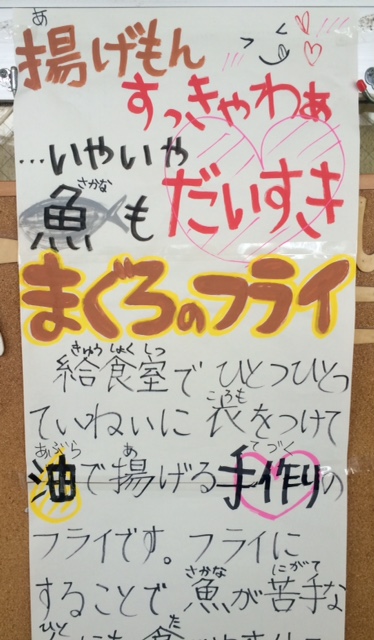 あ
揚げもん
すっきゃわぁ
…いやいや
さかな
魚も だいすき
まぐろのフライ
きゅうしょくしつ
給食室で ひとつひとつ
ころも
ていねいに 衣をつけて
あぶら あ てづく
油で揚げる手作りの
フライです。フライに
さかな にがて
することで 魚が苦手な
ひと た